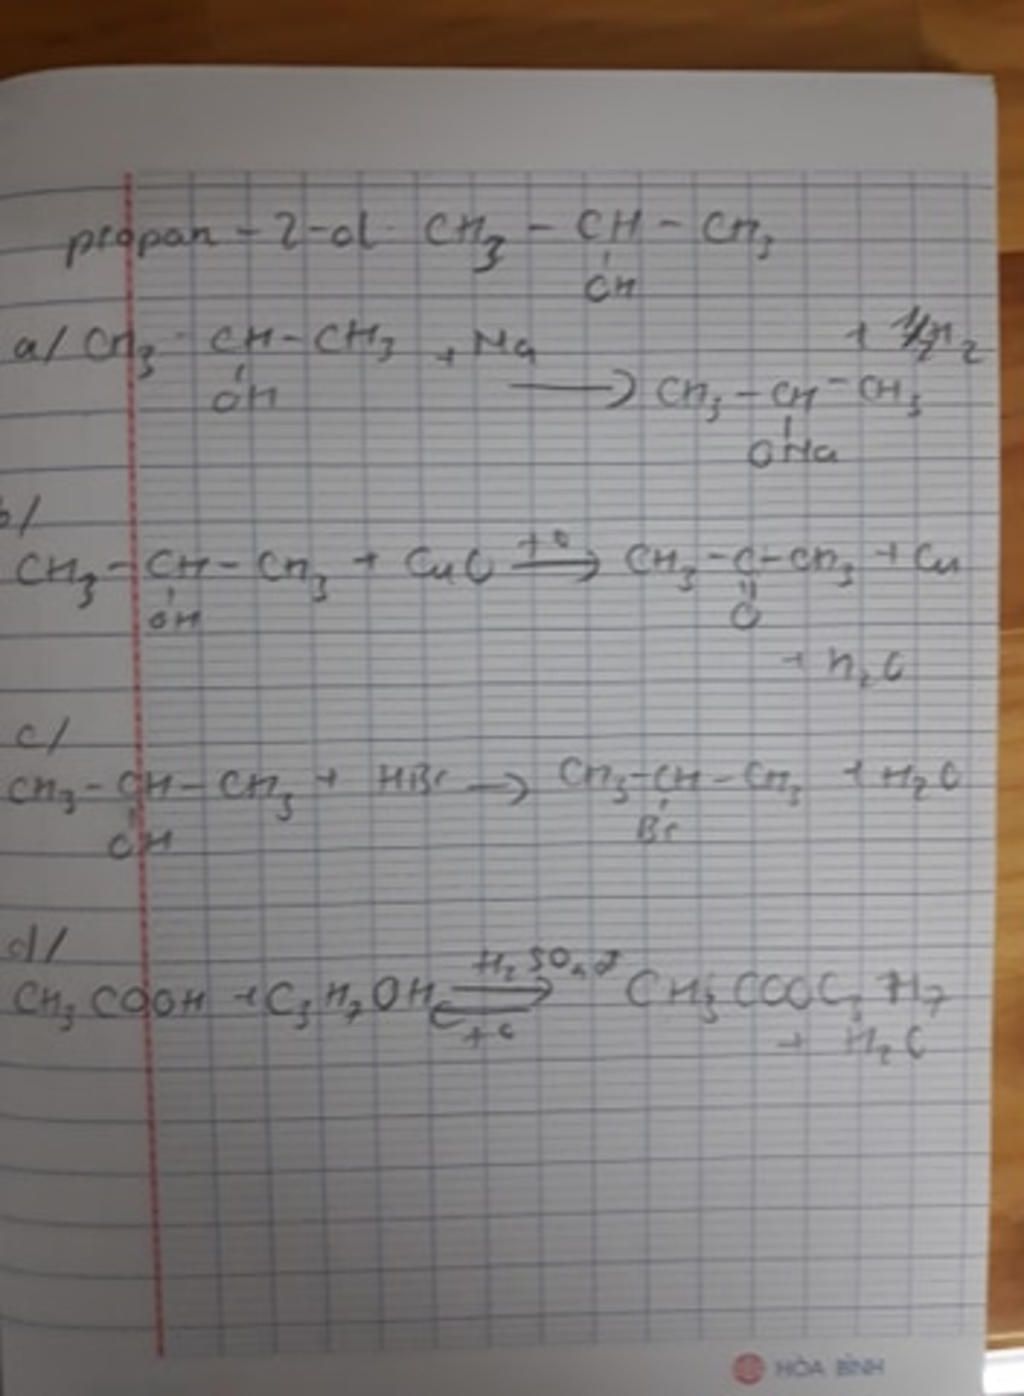 propan - 2-ol. CH3 - CH - CH3
OH
a/ CH3 - CH - CH3 + Na → CH3 - CH - CH3 + 1/2 H2
OH
ONa
b/
CH3 - CH - CH3 + CuO →(t°) CH3 - C - CH3 + Cu
OH
O
+ H2O
c/
CH3 - CH - CH3 + HBr → CH3 - CH - CH3 + H2O
OH
Br
d/
CH3COOH + C3H7OH ⇌(H2SO4 đ, t°) CH3COOC3H7
+ H2O
HÒA BÌNH